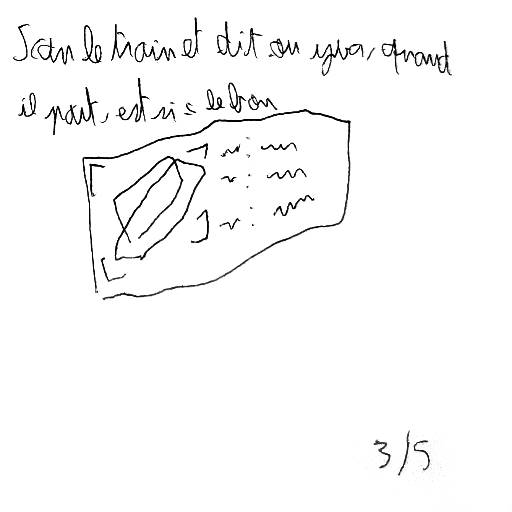 Scan le train et dit ou y va, quand
il part, est si c le bon
3/5